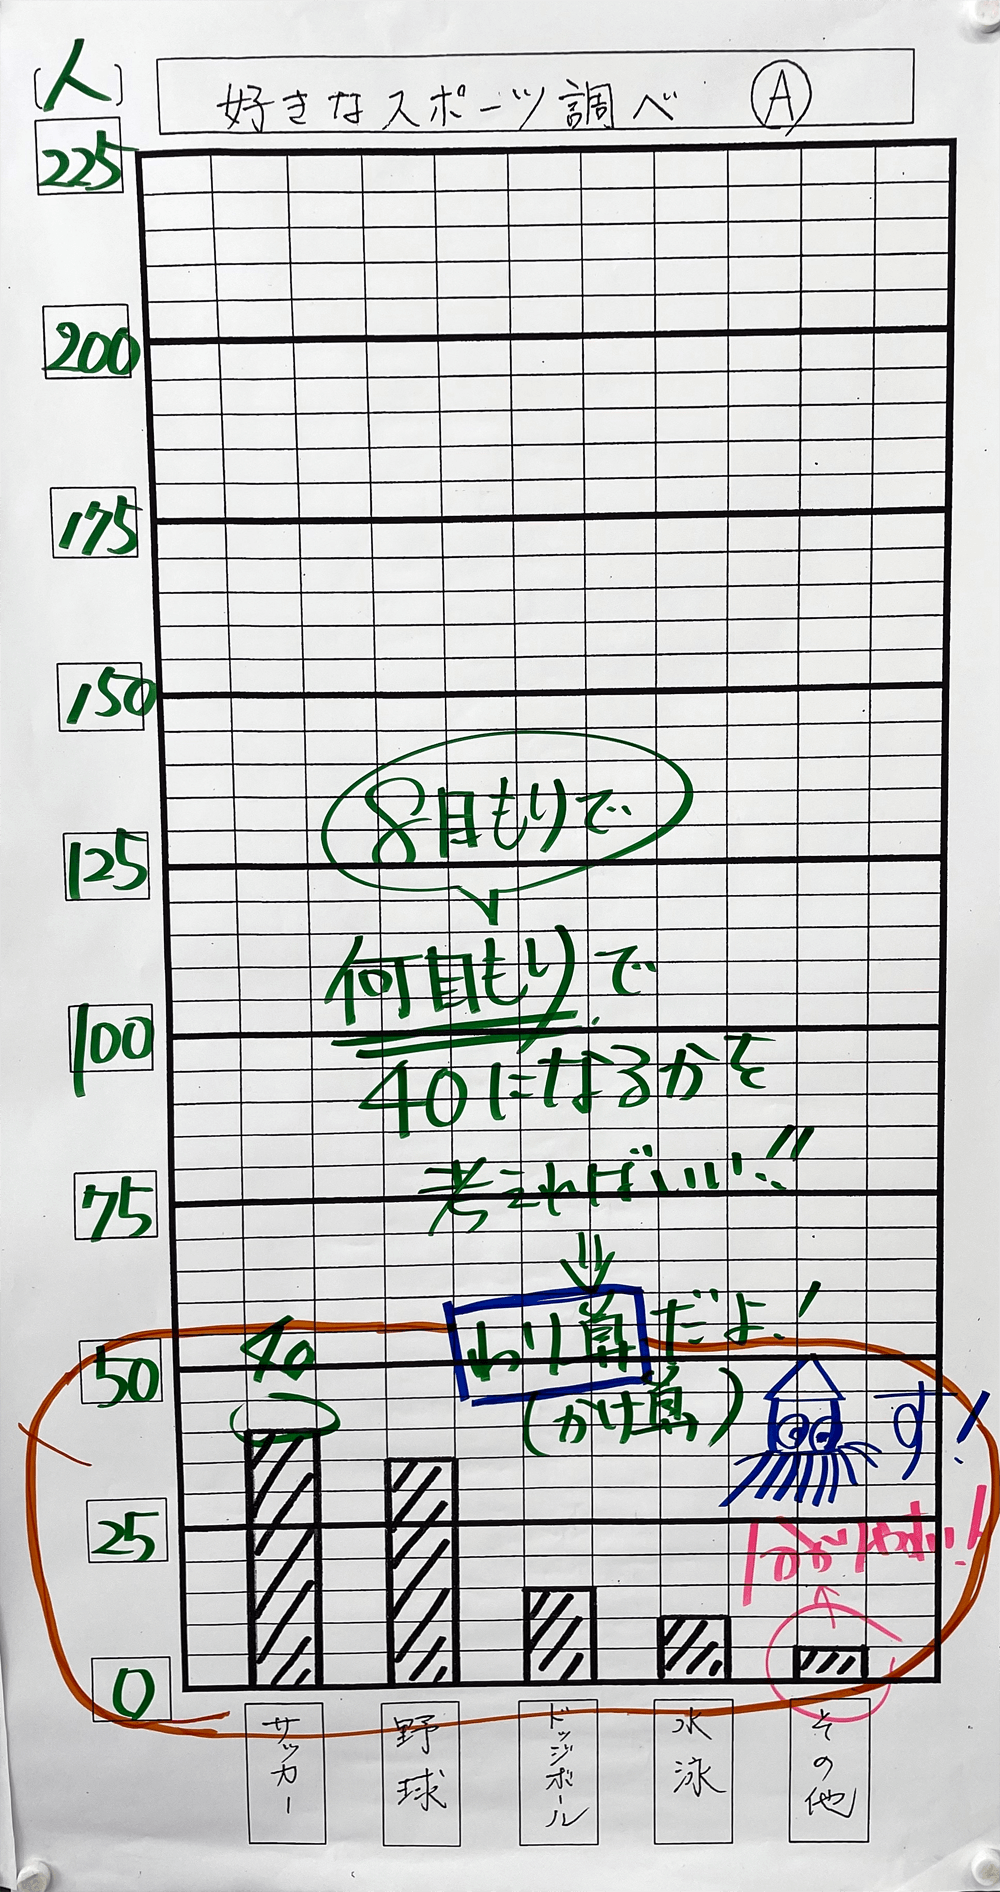 〔人〕
好きなスポーツ調べ Ⓐ
225
200
175
150
125
100
75
50
25
0
8目もりで
何目もりで
40になるかを
考えればいい!!
⇓
わり算だよ!
(かけ算)
40
す!
サッカー
野球
ドッジボール
水泳
その他